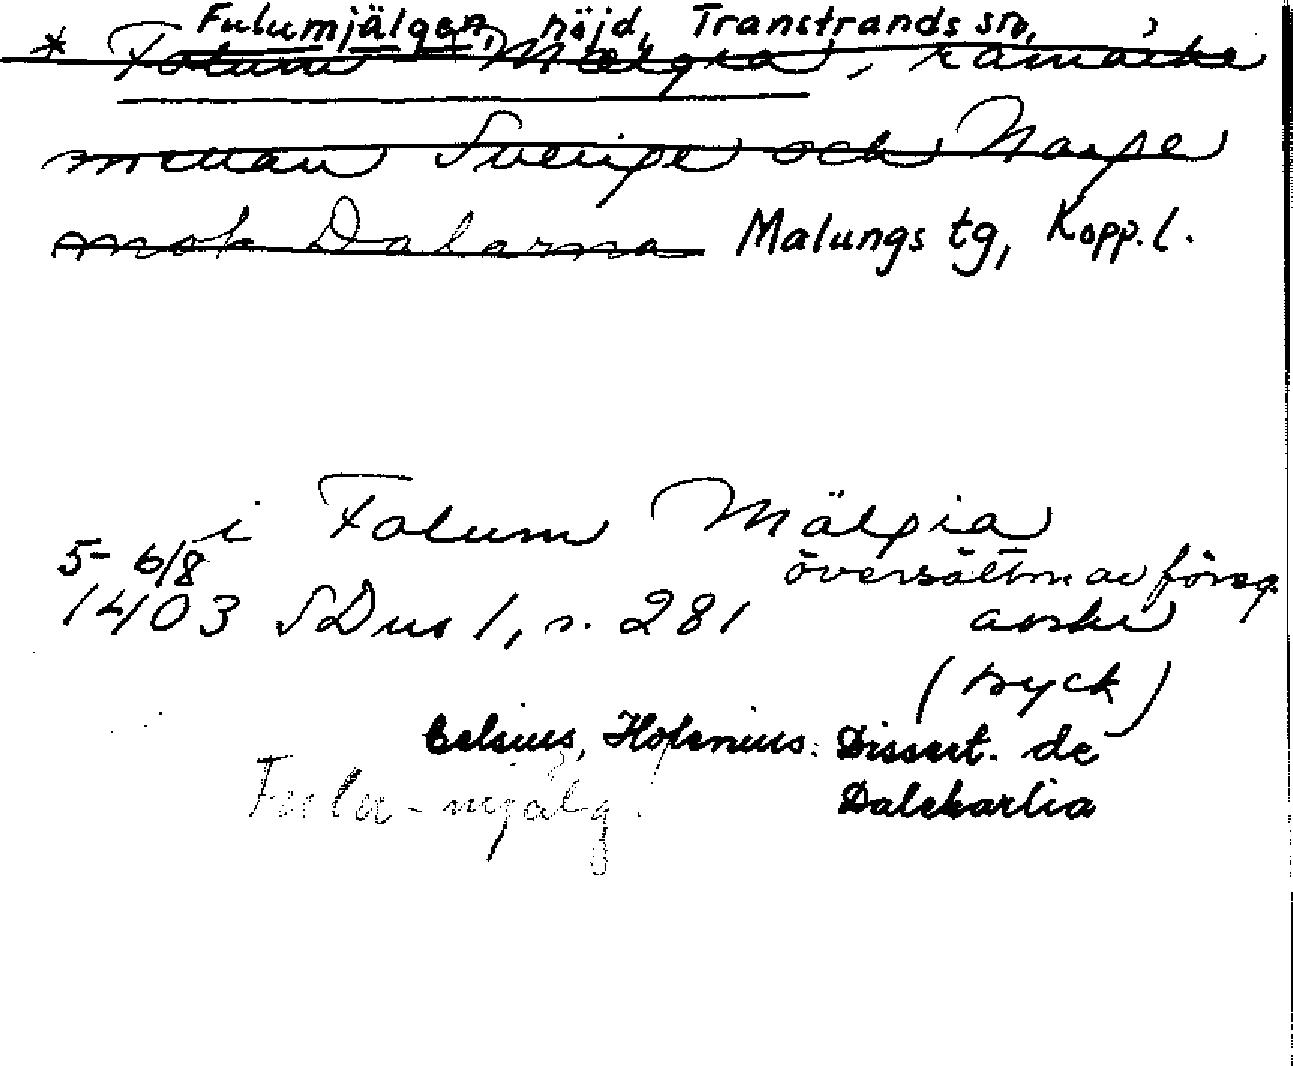 Fulumjälgen, höjd, Transtrands sn,
* Folum Mælgia, råmärke
mellan Sverige och Norge
mot Dalarna Malungs tg, Kopp. l.
i Folum Mälgia
5-6/8 översättn av föreg.
1403 SDns 1, s. 281 avskr
(tryck)
Celsius, Hofenius: Dissert. de
Fula-mjälg. Dalekarlia